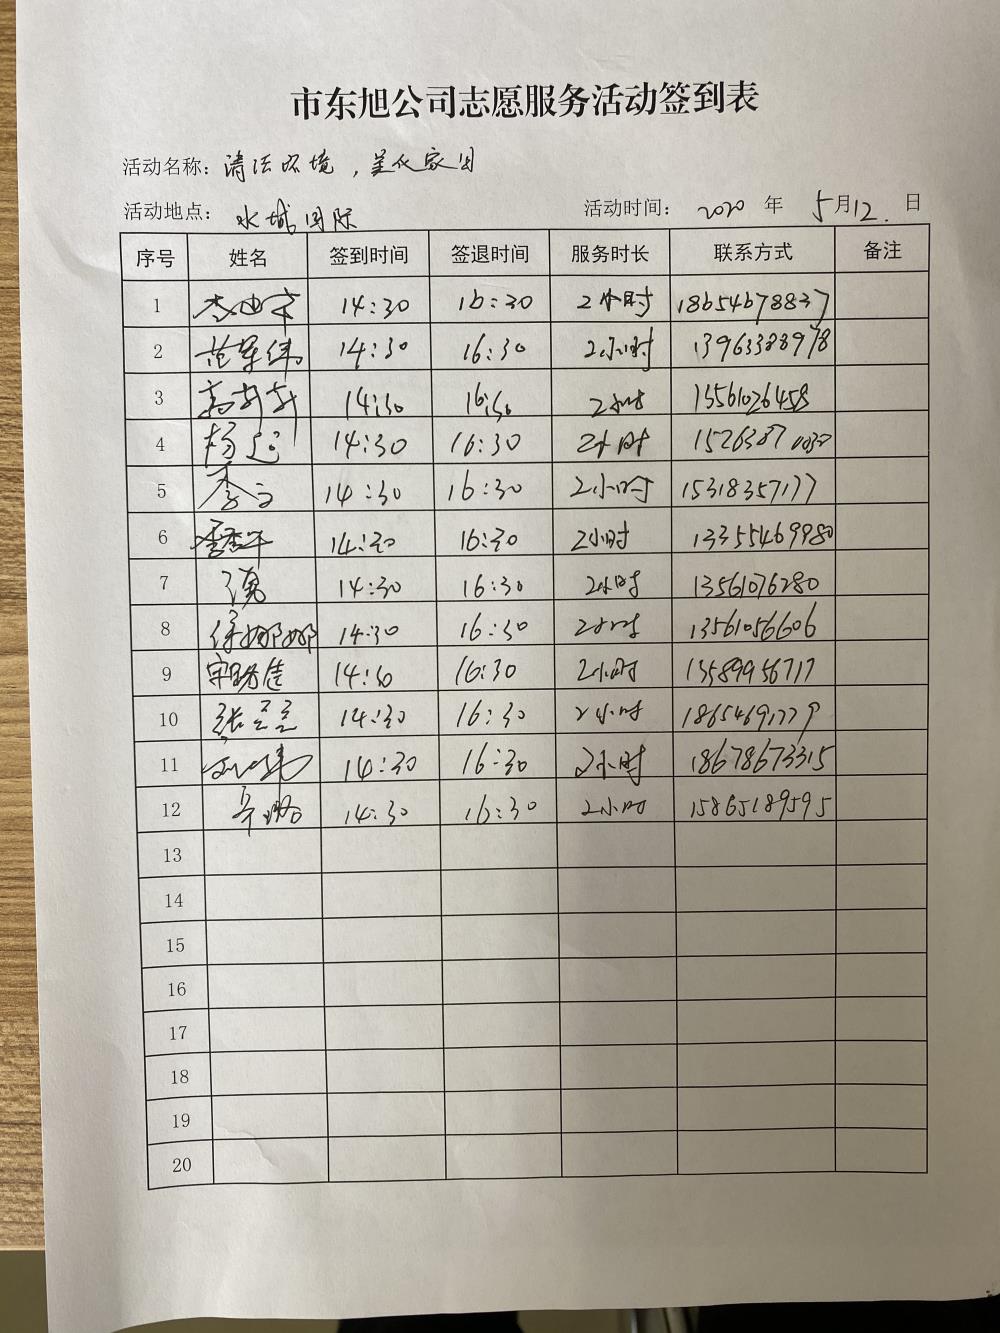 市东旭公司志愿服务活动签到表
活动名称：清洁环境，美化家园
活动地点：水城国际 活动时间：2020 年 5月12 日
序号 姓名 签到时间 签退时间 服务时长 联系方式 备注
1 14:30 16:30 2小时 18654678837
2 范军伟 14:30 16:30 2小时 13963388978
3 14:30 16:30 2小时 13561026458
4 14:30 16:30 2小时
5 14:30 16:30 2小时 15318357177
6 14:30 16:30 2小时 13355469980
7 14:30 16:30 2小时 13561076280
8 徐娜娜 14:30 16:30 2小时 13561056606
9 14:30 16:30 2小时 13589956717
10 14:30 16:30 2小时 18654691779
11 14:30 16:30 2小时 18678673315
12 辛璐 14:30 16:30 2小时 15865189595
13
14
15
16
17
18
19
20